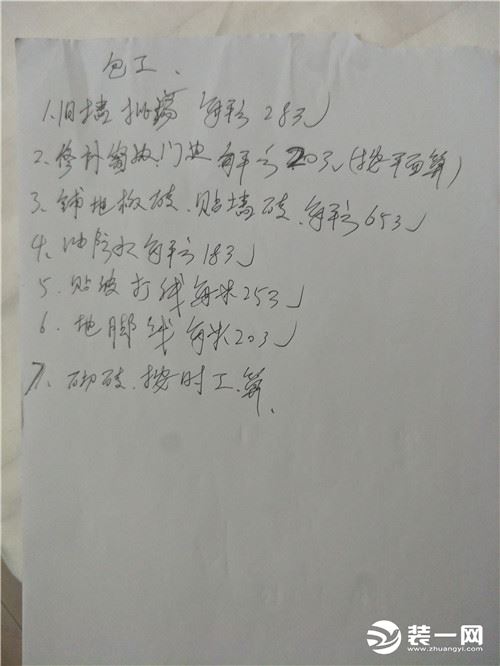 包工.
1.旧墙批荡 每平方 28元
2.修补窗边.门边 每平方 20元(按平面算)
3.铺地板砖.贴墙砖.每平方65元
4.油防水每平方18元
5.贴波打线每米25元
6.地脚线每米20元
7.砌砖.按时工.算.
装一网
www.zhuangyi.com